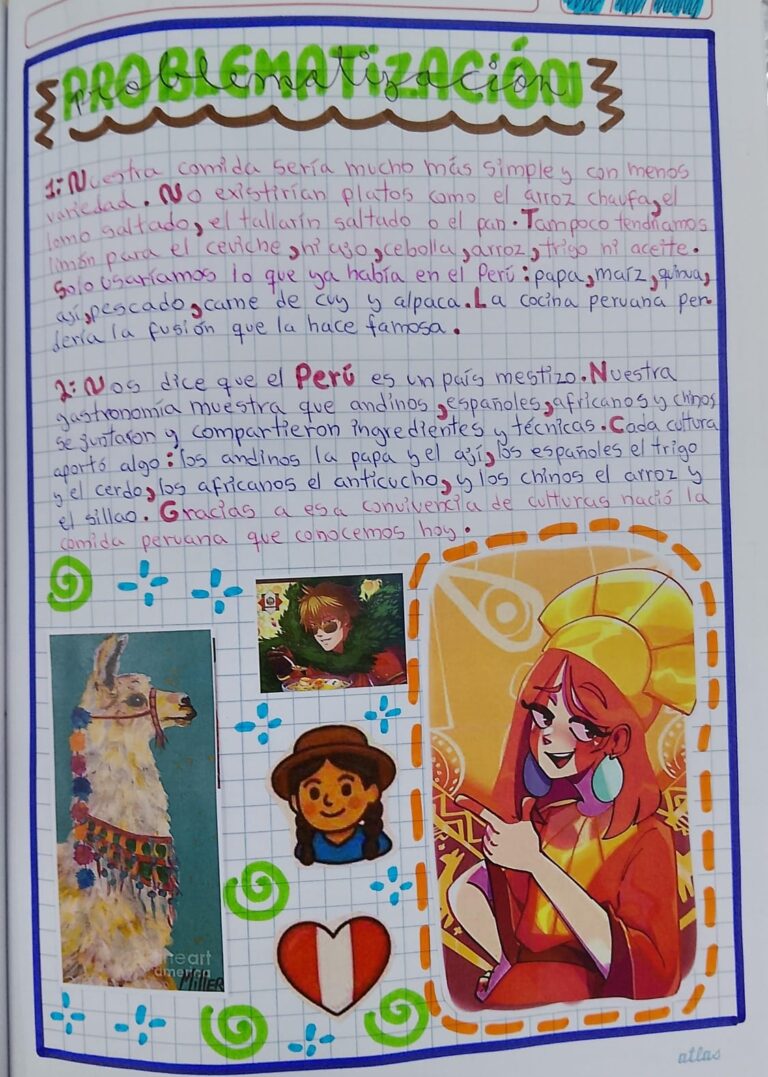 PROBLEMATIZACIÓN
problematización
1: Nuestra comida sería mucho más simple y con menos
variedad. No existirían platos como el arroz chaufa, el
lomo saltado, el tallarín saltado o el pan. Tampoco tendríamos
limón para el ceviche, ni ajo, cebolla, arroz, trigo ni aceite.
Solo usaríamos lo que ya había en el Perú: papa, maíz, quinua,
ají, pescado, carne de cuy y alpaca. La cocina peruana per-
dería la fusión que la hace famosa.
2: Nos dice que el Perú es un país mestizo. Nuestra
gastronomía muestra que andinos, españoles, africanos y chinos
se juntaron y compartieron ingredientes y técnicas. Cada cultura
aportó algo: los andinos la papa y el ají, los españoles el trigo
y el cerdo, los africanos el anticucho, y los chinos el arroz y
el sillao. Gracias a esa convivencia de culturas nació la
comida peruana que conocemos hoy.
america
Miller
atlas